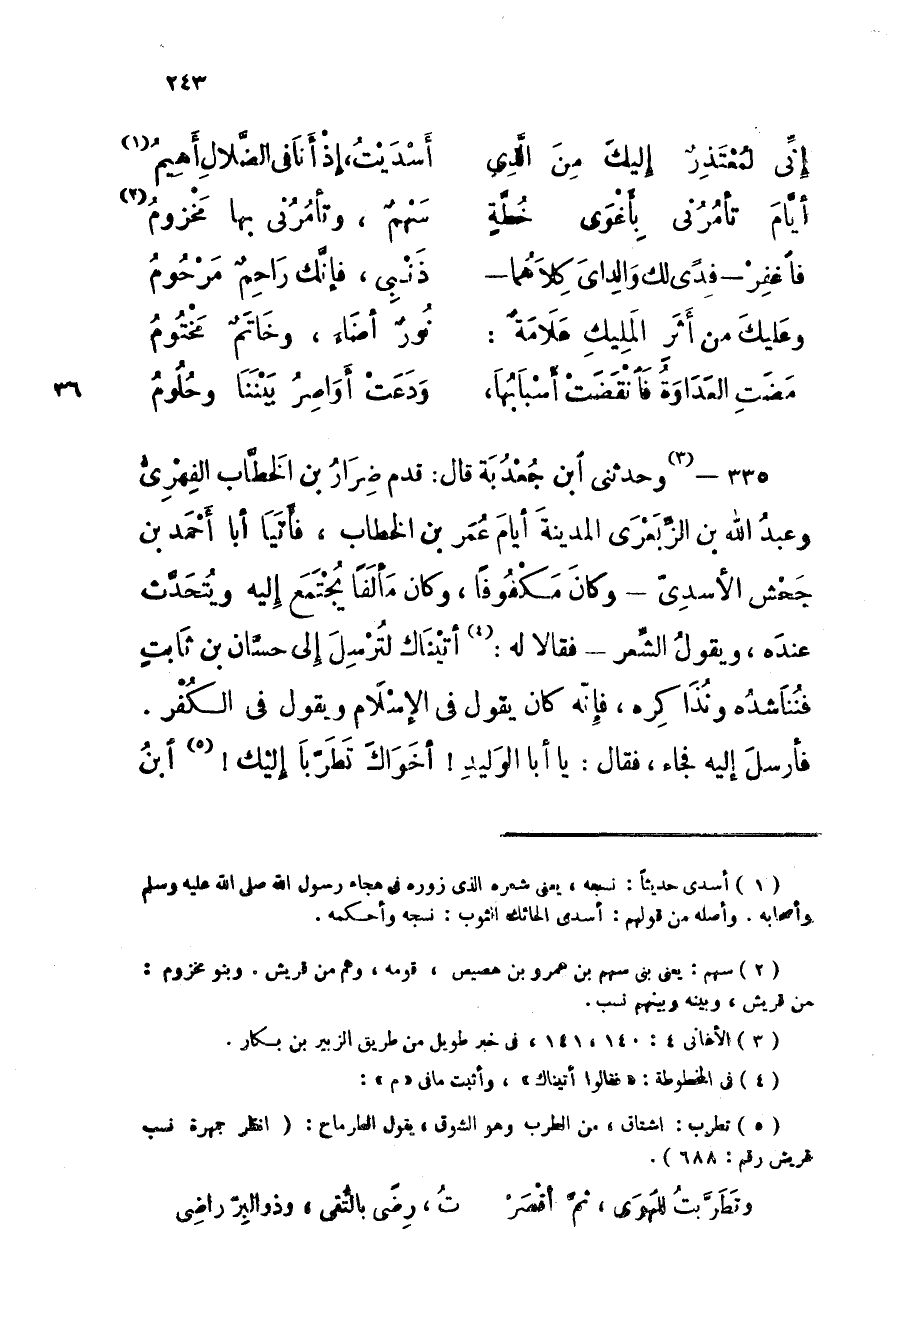 ٢٤٣
إِنِّى لَمُعْتَذِرٌ إِليكَ مِنَ الَّذِي أَسْدَيْتُ، إِذْ أَنَا فى الضَّلالِ أَهِيمُ (١)
أَيَّامَ تأمُرُنى بِأَغْوَى خُطَّةٍ سَهْمٌ ، وتأمُرُنى بها مَخْزومُ (٢)
فاَغفِرْ – فدًى لك وَالِداىَ كِلاَهُما – ذَنْبِي ، فإنَّك رَاحِمٌ مَرْحُومُ
وعَليكَ من أَثَرِ المَلِيكِ عَلَامَةٌ : نُورٌ أضَاء ، وخَاتَمٌ مَخْتُومُ
مَضَتِ العَدَاوَةُ فَاَنْقَضَتْ أَسْبَابُها، وَدَعَتْ أَوَاصِرُ بَيْنَنَا وحُلُومُ ٣٦
٣٣٥ – (٣) وحدثنى ٱبن جُعْدُبَة قال: قدم ضِرَارُ بن الخطَّاب الفِهْرِىُّ
وعبدُ الله بن الزِّبَعْرَى المدينةَ أيامَ عُمَر بن الخطاب ، فأَتَيَا أبا أَحْمَد بن
جَحْش الأسدِىّ – وكانَ مَكْفُوفًا ، وكان مَأْلَفًا يُجْتَمَع إليه ويُتَحَدَّث
عنده ، ويقولُ الشِّعر – فقالا له : (٤) أتيْنَاك لتُرْسِلَ إلى حسَّان بن ثَابتٍ
فنُنَاشدُه ونُذَاكره ، فإنّه كان يقول فى الإسْلَام ويقول فى الكُفْر .
فأرسلَ إليه فجاء ، فقال : يا أبا الوَليدِ ! أخَوَاكَ تَطَرَّبَا إليْك ! (٥) ٱبنُ
( ١ ) أسدى حديثاً : نسجه ، يعنى شعره الذى زوره فى هجاء رسول الله صلى الله عليه وسلم
وأصحابه . وأصله من قولهم : أسدى الحائك الثوب : نسجه وأحكمه .
( ٢ ) سهم : يعنى بنى سهم بن عمرو بن هصيص ، قومه ، وهم من قريش . وبنو مخزوم :
من قريش ، وبينه وبينهم نسب .
( ٣ ) الأغانى ٤ : ١٤٠ ، ١٤١ ، فى خبر طويل من طريق الزبير بن بكار .
( ٤ ) فى المخطوطة : « فقالوا أتيناك » ، وأثبت مافى « م » :
( ٥ ) تطرب : اشتاق ، من الطرب وهو الشوق ، يقول الطرماح : ( انظر جمهرة نسب
قريش رقم : ٦٨٨ ) .
وتَطَرَّبتُ للهَوَى ، ثمَّ أقْصَرْ تُ ، رِضًى بالتُّقى ، وذو البِرّ راضِى